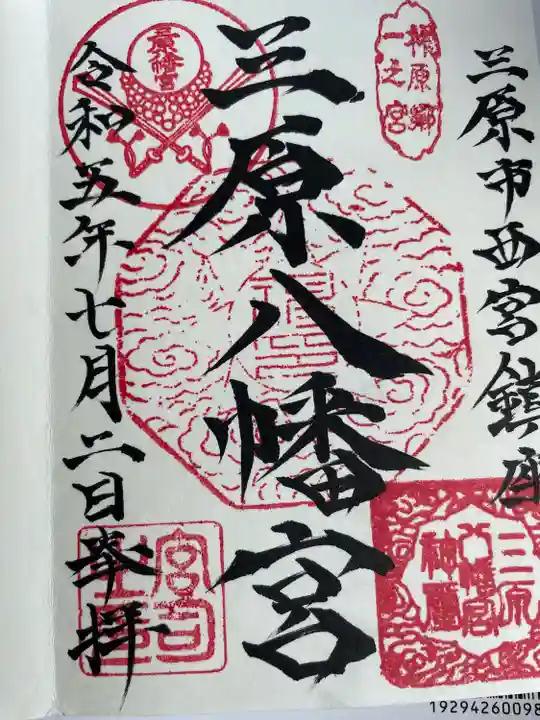 三原市西宮鎮座
三原八幡宮
令和五年七月二日奉拝
一之宮
三原
八幡宮
神璽
宮司
19294260098